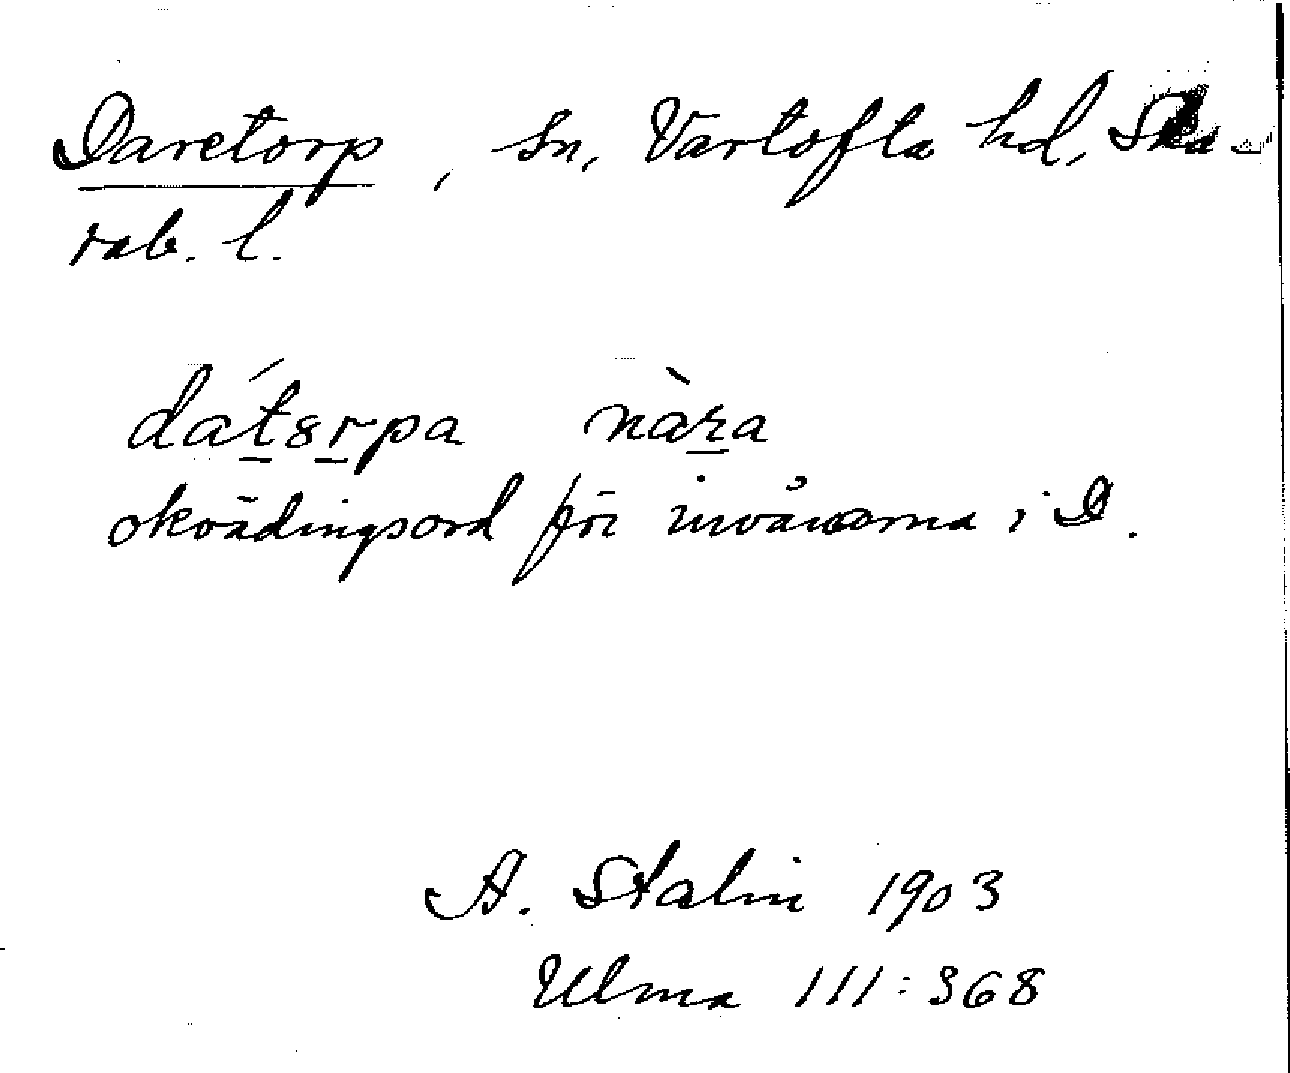 Daretorp, sn, Vartofta hd, Ska-
rab. l.
dát̲ɞr̲pa nàr̲a
okvädingsord för invånarna i D.
A. Stalin 1903
Ulma 111:368